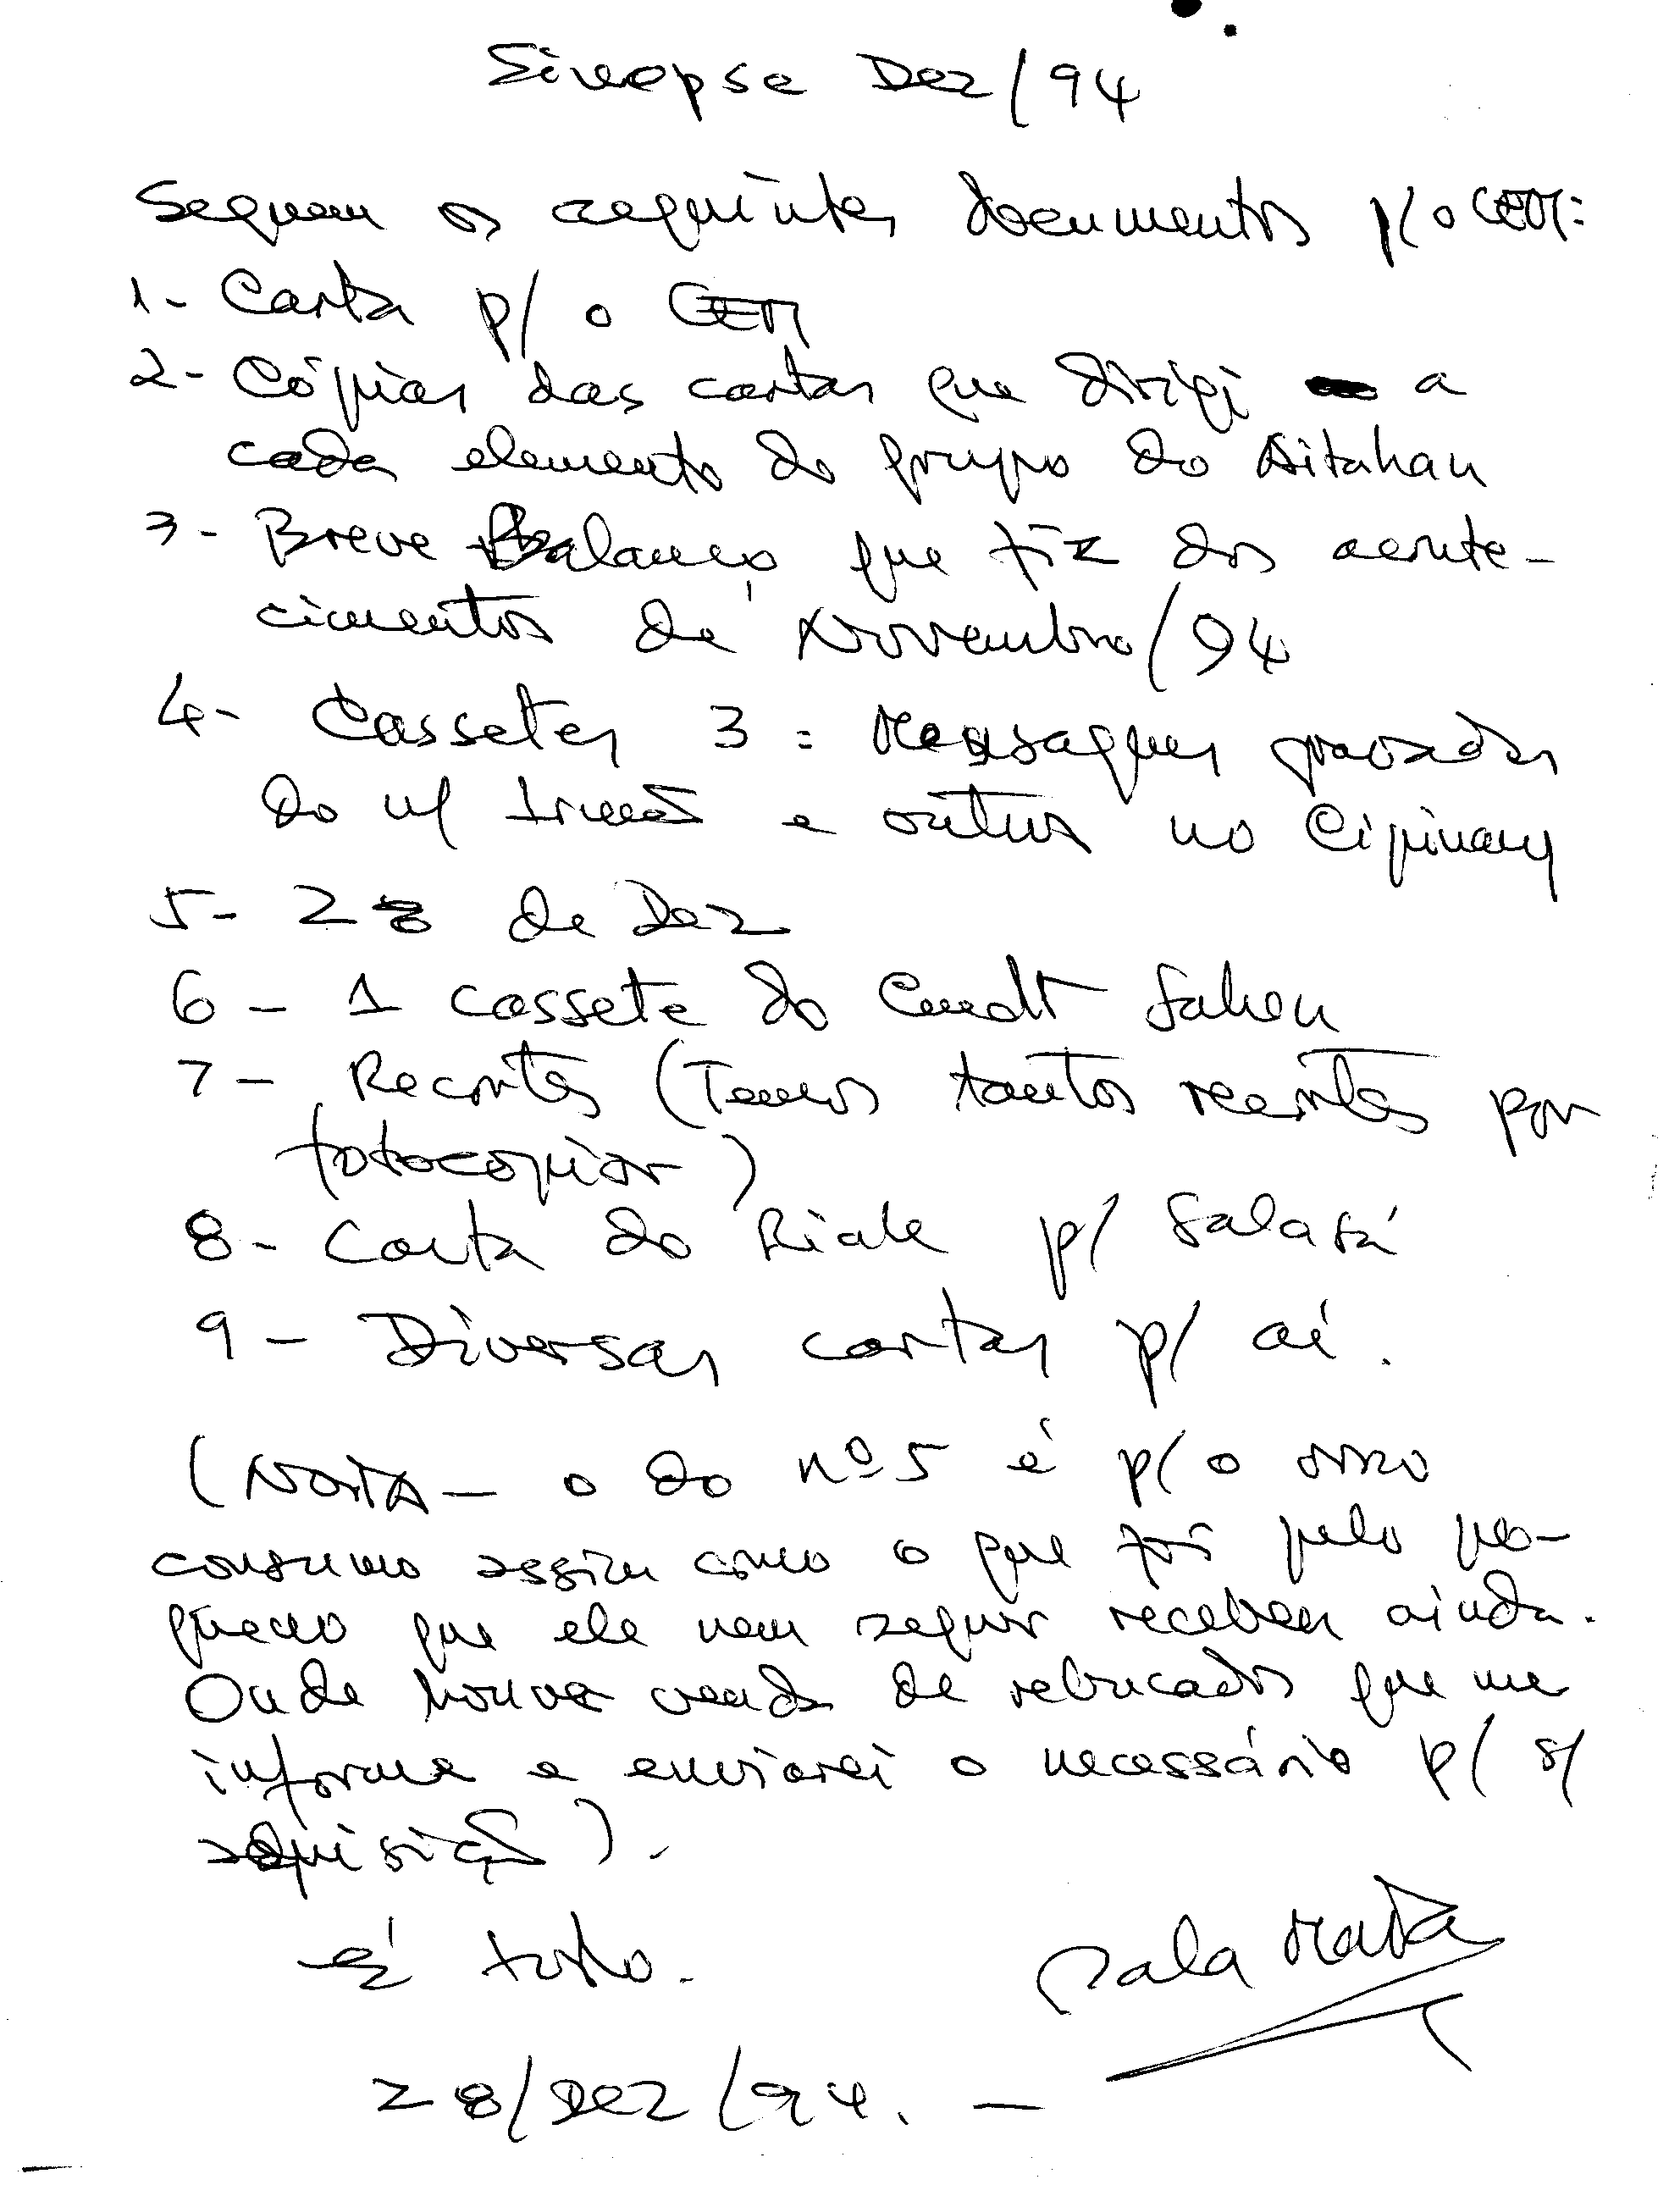 Sinopse Dez/94
Seguem os seguintes documentos p/ o CEM:
1- Carta p/ o CEM
2- Cópias das cartas que dirigi a
cada elemento do grupo do Aitahan
3- Breve Balanço que fiz dos aconte-
cimentos de Novembro/94
4- Cassetes 3 : Mensagens gravadas
do n/ Irmão e outros no Cipinang
5- 28 de Dez
6- 1 cassete do Cmdt Sahen
7- Recortes (Temos tantos recortes por
fotocopiar)
8- Carta do Riak p/ Salasá
9- Diversas cartas p/ aí.
(NOTA- o do nº 5 é p/ o osso
consumo assim como o que foi pelo pe-
queno que ele nem sequer recebeu ainda.
Onde houver venda de rebuçados que me
informe e enviarei o necessário p/ s/
aquisição).
É tudo.
Sala Mata
28/DEZ/94. -